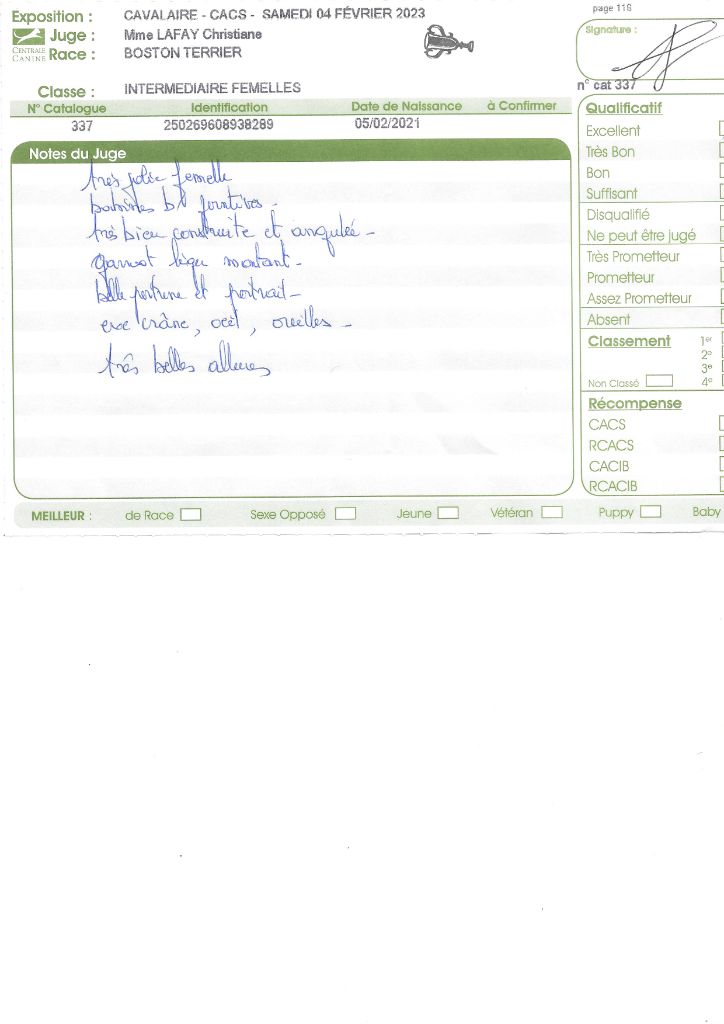 page 116
Exposition : CAVALAIRE - CACS - SAMEDI 04 FÉVRIER 2023
Juge : Mme LAFAY Christiane
CENTRALE CANINE
Race : BOSTON TERRIER
Signature :
Classe : INTERMEDIAIRE FEMELLES
n° cat 337
N° Catalogue Identification Date de Naissance à Confirmer
337 250269608938289 05/02/2021
Notes du Juge
très jolie femelle
très bien construite et angulée -
garrot montant -
belle et portrait -
exc crâne, oeil, oreilles -
très belles allures
Qualificatif
Excellent
Très Bon
Bon
Suffisant
Disqualifié
Ne peut être jugé
Très Prometteur
Prometteur
Assez Prometteur
Absent
Classement 1er
2e
3e
Non Classé 4e
Récompense
CACS
RCACS
CACIB
RCACIB
MEILLEUR : de Race Sexe Opposé Jeune Vétéran Puppy Baby